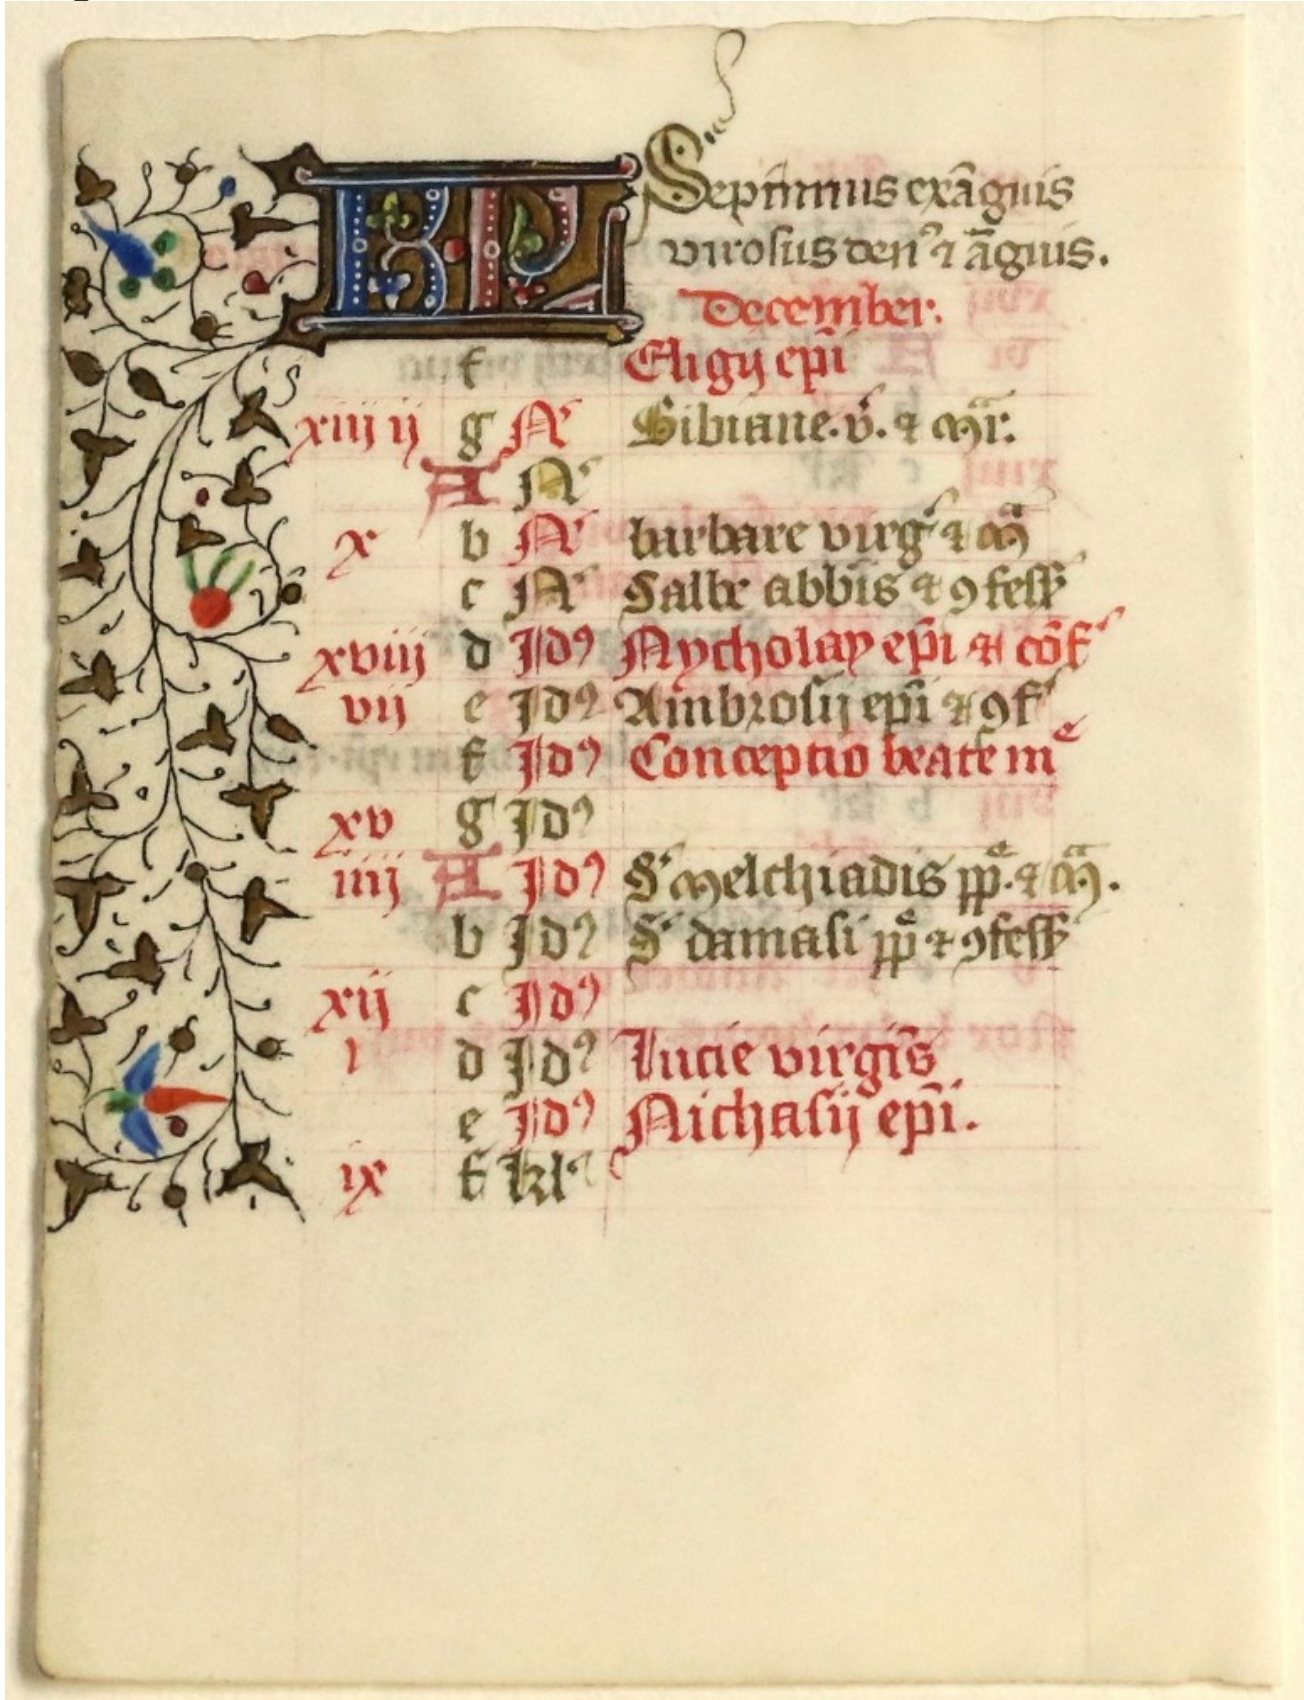 KL Septimus exāguis
virosus denꝰ ⁊ āguis.
December.
f Eligij ep̄i
xiij ij g Nᵉ Bibiane. v̄. ⁊ m̄r.
A Nᵉ
x b Nᵉ barbare virgᵉ ⁊ m̄
c Nᵉ Salbe abb̄is ⁊ ꝯfess
xviij d Idꝰ Nycholay ep̄i ⁊ cōf
vij e Idꝰ Ambrosij ep̄i ⁊ ꝯf
f Idꝰ Conceptio beate mᵉ
xv g Idꝰ
iiij A Idꝰ Sᶜ melchiadis pp̄ᵉ. ⁊ m̄.
b Idꝰ Sᶜ damasi pp̄ᵉ ⁊ ꝯfess
xij c Idꝰ
i d Idꝰ Lucie virgīs
e Idꝰ Nichasij ep̄i.
ix f klᵃ